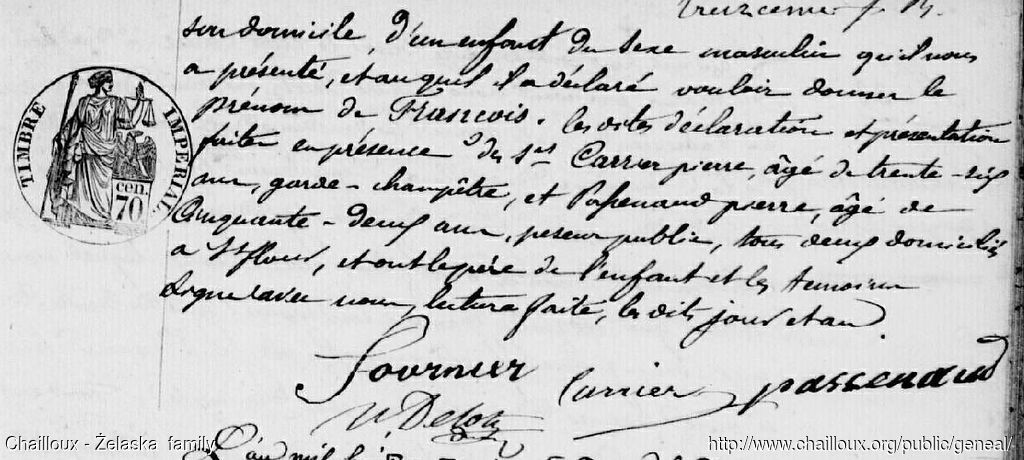 treizeme f. 13.
son domicile, d'un enfant du sexe masculin qu'il nous
a présenté, et auquel il a déclaré vouloir donner le
prénom de François. les dites déclaration et présentation
faites en présence des srs Carrier pierre, âgé de trente-six
ans, garde-champêtre, et Passenaud pierre, âgé de
Cinquante-deux ans, peseur public, tous deux domiciliés
a St flour, et ont le père de l'enfant et les témoins
signé avec nous, lecture faite, les dits jour et an.
TIMBRE IMPERIAL
70 cen.
Fournier Carrier passenaud
Chailloux - Żelaska family
http://www.chailloux.org/public/geneal/
L'an mil